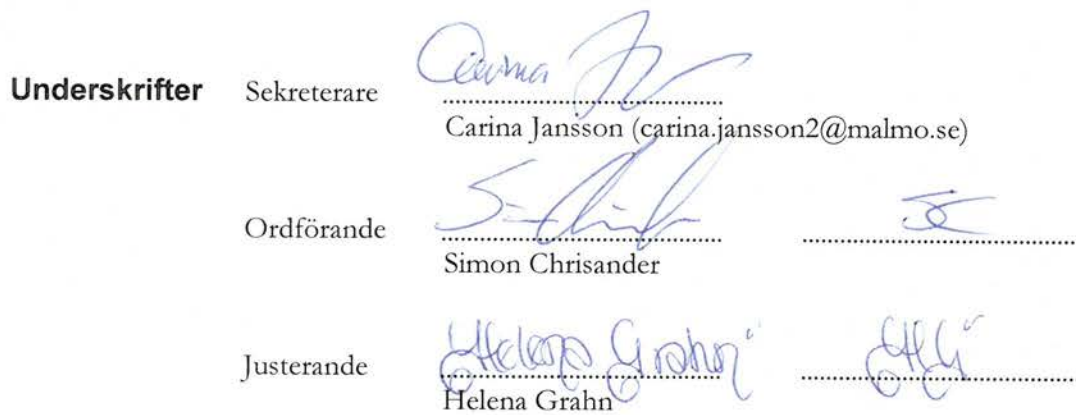 Carina J
Underskrifter Sekreterare
Carina Jansson (carina.jansson2@malmo.se)
Ordförande SC
Simon Chrisander
Justerande Helena Grahn HG
Helena Grahn